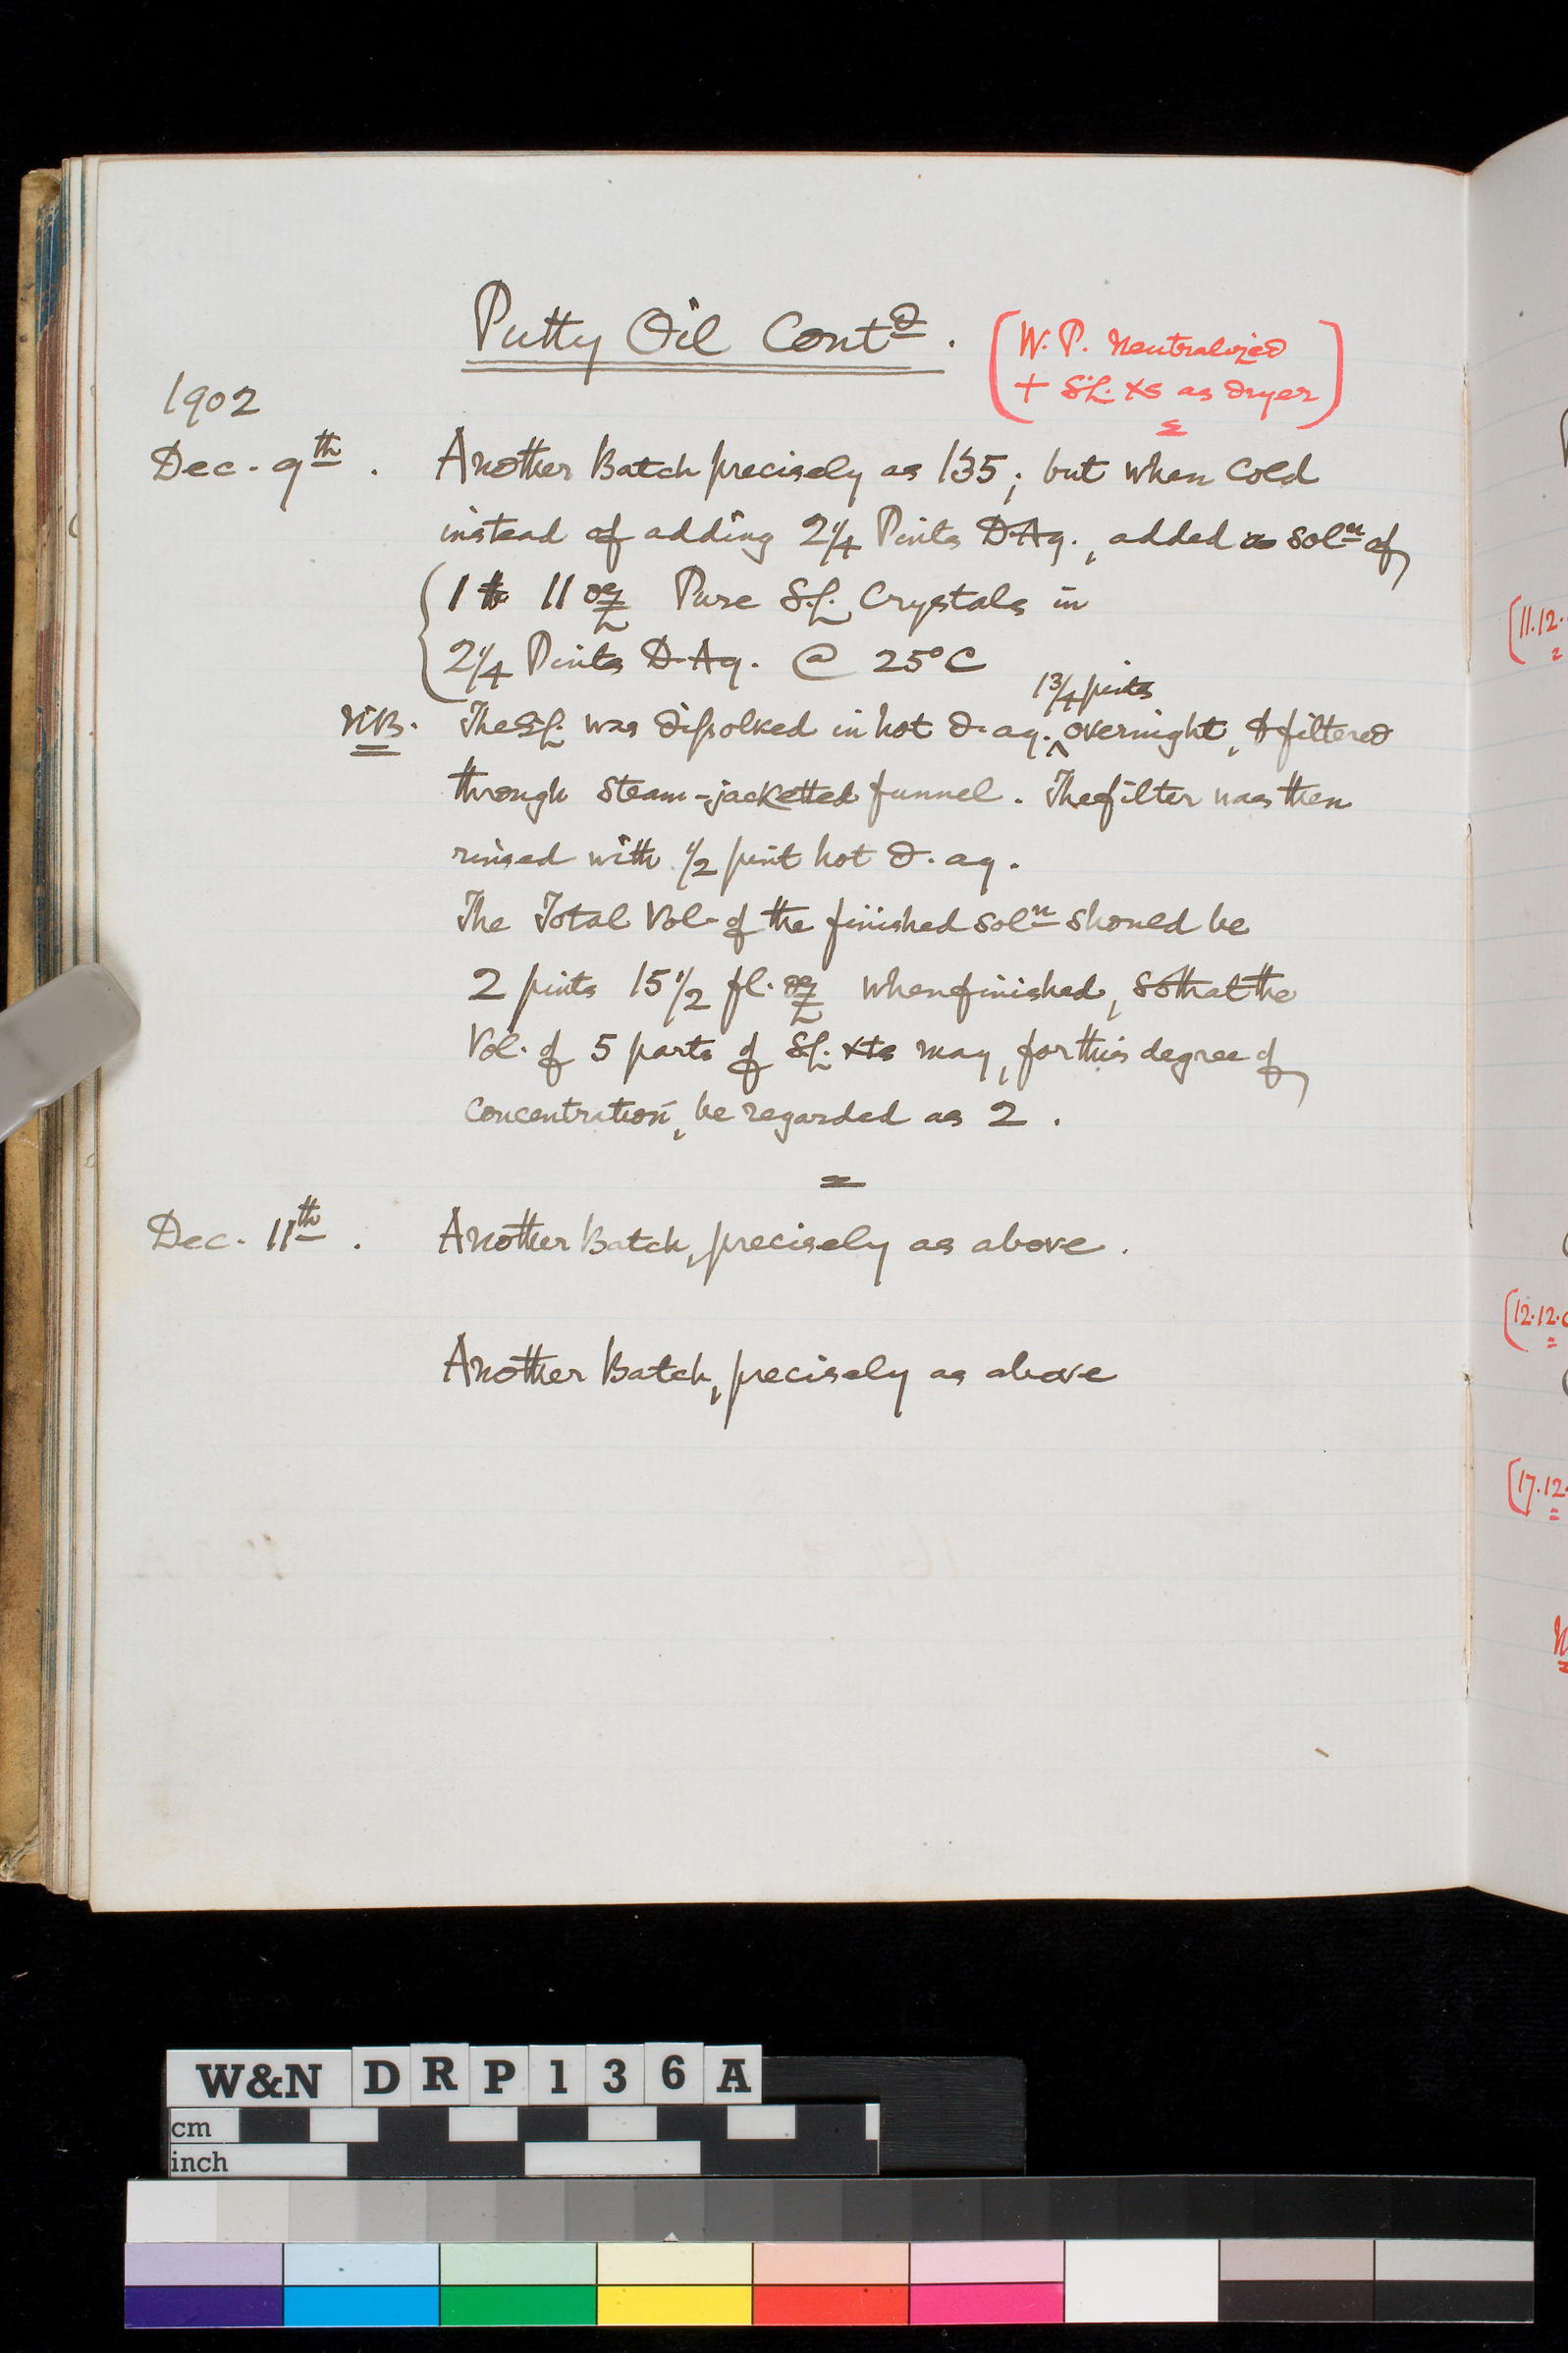 Putty Oil Contd.
(W.P. Neutralized
+ S.L. xs as dryer)
1902
Dec. 9th. Another Batch precisely as 135; but when cold
instead of adding 2 1/4 Pints D.Aq., added a soln of
{1 lb 11 oz Pure S.L. Crystals in
2 1/4 Pints D.Aq. @ 25°C
1 3/4 pints
N.B. The S.L. was dissolved in hot d.aq. ^ overnight, & filtered
through steam-jacketted funnel. The filter was then
rinsed with 1/2 pint hot d.aq.
The Total Vol. of the finished soln should be
2 pints 15 1/2 fl. oz when finished, so that the
Vol. of 5 parts of S.L. xts may, for this degree of
concentration, be regarded as 2.
Dec. 11th. Another Batch, precisely as above.
Another Batch, precisely as above
(11.12.
(12.12.0
(17.12.
W&N DRP136A
cm
inch